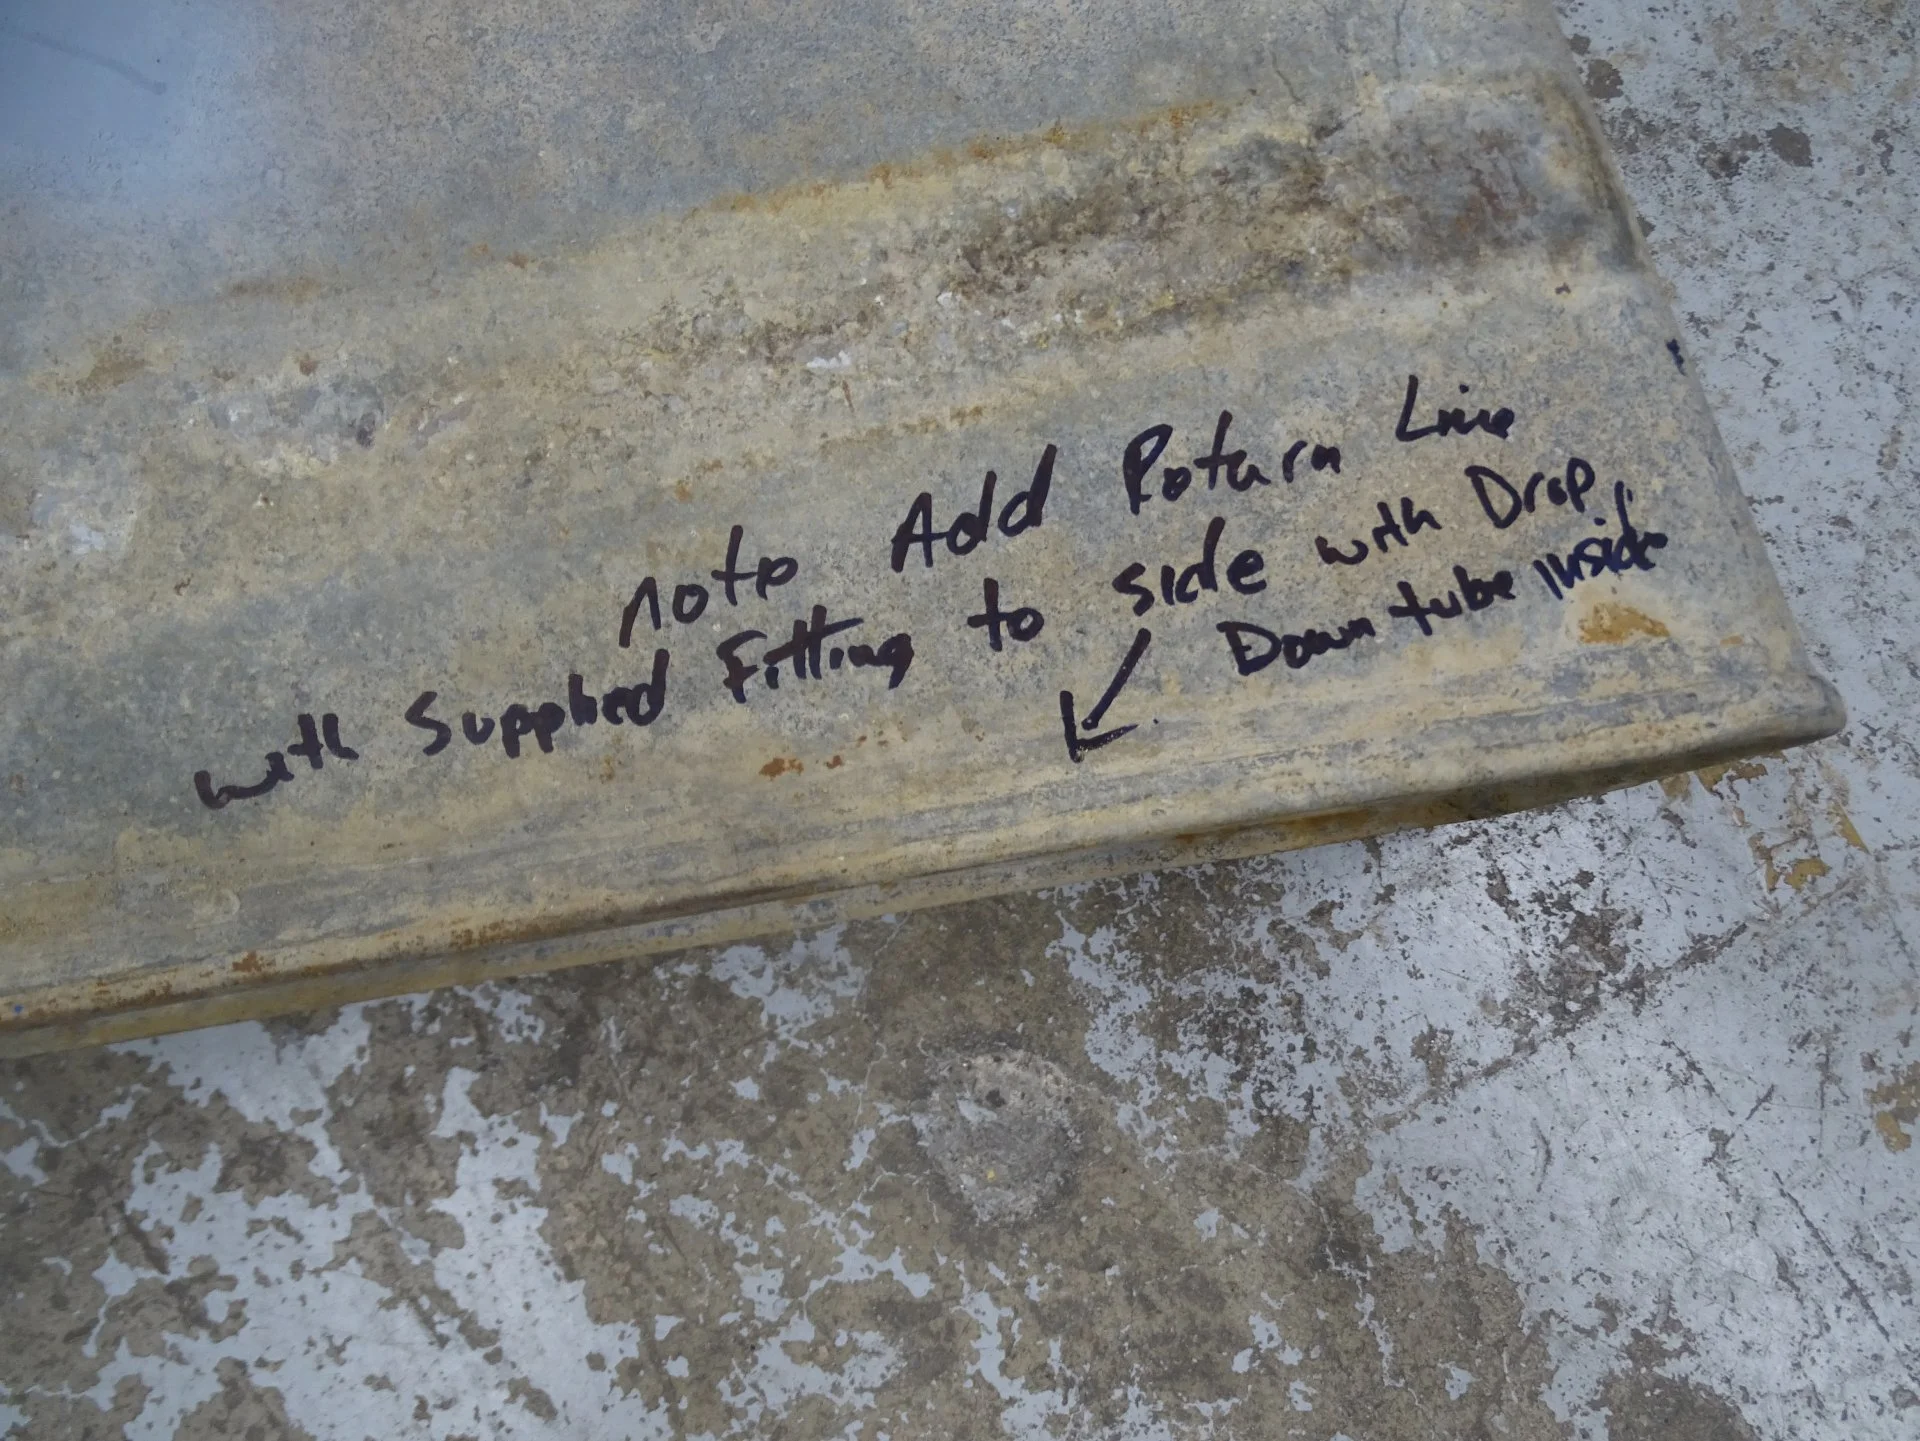 note Add Return Line
with Supplied Fitting to side with Drop
Down tube inside